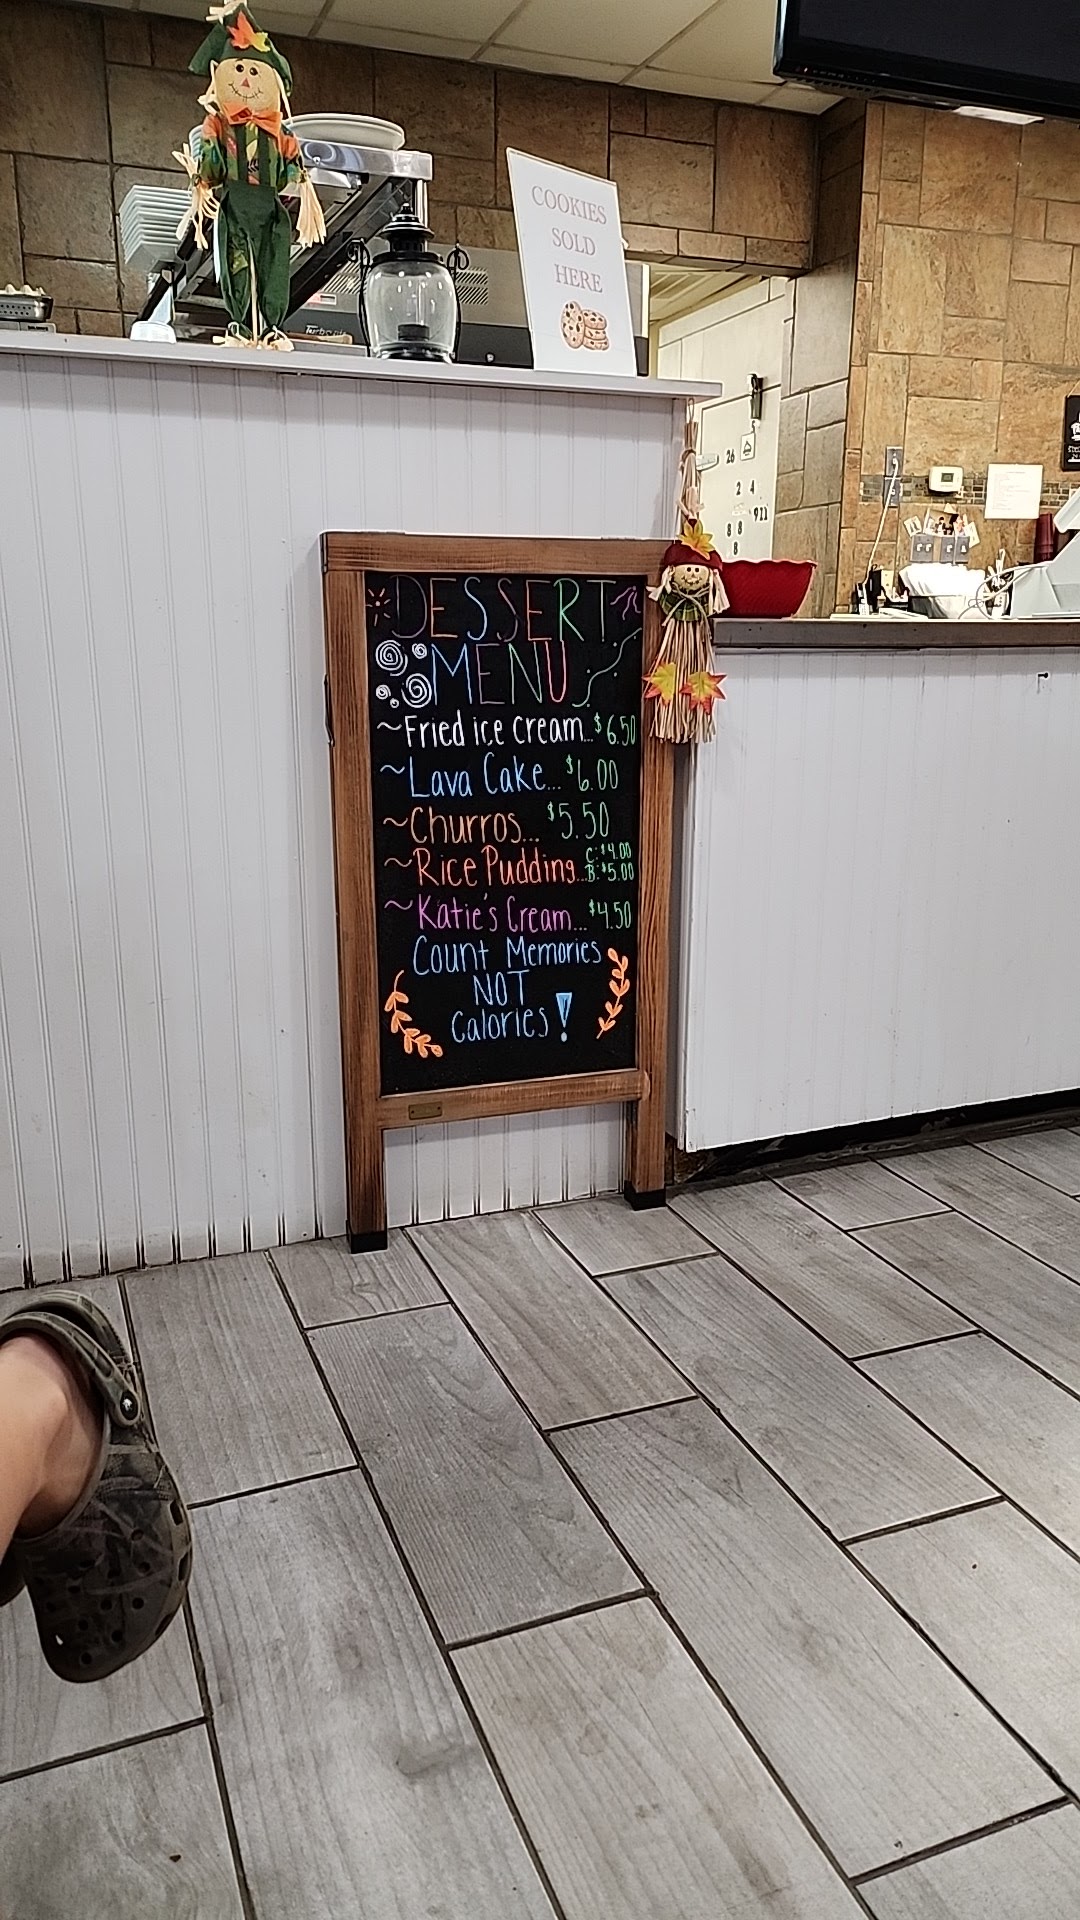 COOKIES
SOLD
HERE
DESSERT
MENU
~Fried ice cream...$6.50
~Lava Cake...$6.00
~Churros...$5.50
~Rice Pudding...C:$4.00
B:$5.00
~Katie's Cream...$4.50
Count Memories
NOT
Calories!
26
2 4
911
8 8
8